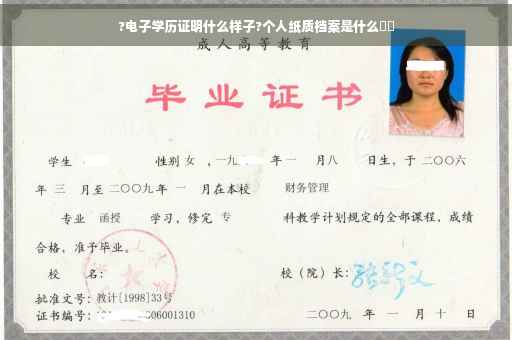 ?电子学历证明什么样子?个人纸质档案是什么
成人高等教育
毕业证书
学生 性别 女 ，一九 年 一 月八 日生，于 二〇〇六
年 三 月至 二〇〇九 年 一 月在本校 财务管理
专业 函授 学习，修完 专 科教学计划规定的全部课程，成绩
合格，准予毕业。
校 名： 校（院）长：
批准文号：教计[1998]33号
证书编号： 06001310 二〇〇九 年 一 月 十 日